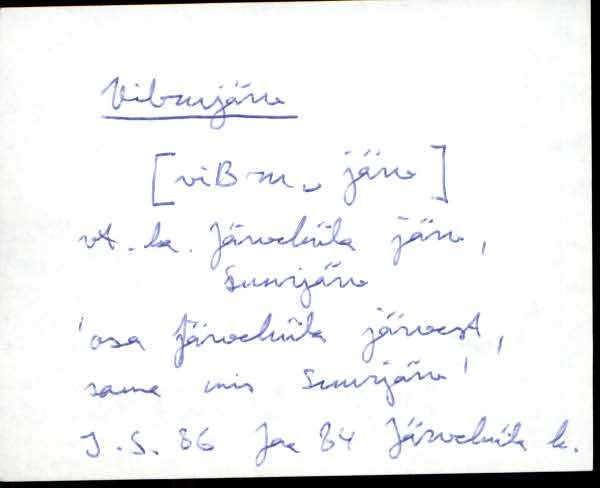 Vibmjärv
[viBm‿järv]
vt. ka. Järveküla järv,
Suurjärv
'osa Järveküla järvest,
sama mis Suurjärv'
J. S. 86 Jaa 84 Järveküla k.